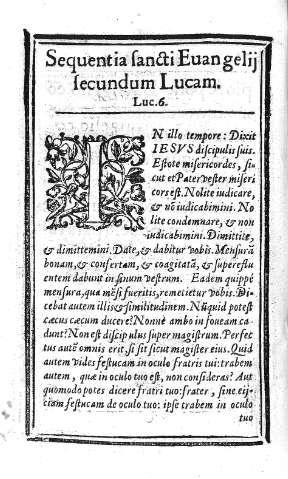 Sequentia sancti Euangelij
secundum Lucam.
Luc.6.
IN illo tempore: Dixit
IESVS discipulis suis.
Estote misericordes, si-
cut et Pater vester miseri
cors est. Nolite iudicare,
& nō iudicabimini. No
lite condemnare, & non
iudicabimini. Dimittite,
& dimittemini. Date, & dabitur vobis. Mensurā
bonam, & confertam, & coagitatā, & superefflu
entem dabunt in sinum vestrum. Eadem quippe
mensura, qua mēsi fueritis, remetietur vobis. Di-
cebat autem illis & similitudinem. Nūquid potest
cæcus cæcum ducere? Nonne ambo in foueam ca-
dunt? Non est discipulus super magistrum. Perfec
tus autē omnis erit, si sit sicut magister eius. Quid
autem vides festucam in oculo fratris tui: trabem
autem, quæ in oculo tuo est, non consideras? Aut
quomodo potes dicere fratri tuo: frater, sine eij-
ciam festucam de oculo tuo: ipse trabem in oculo
tuo